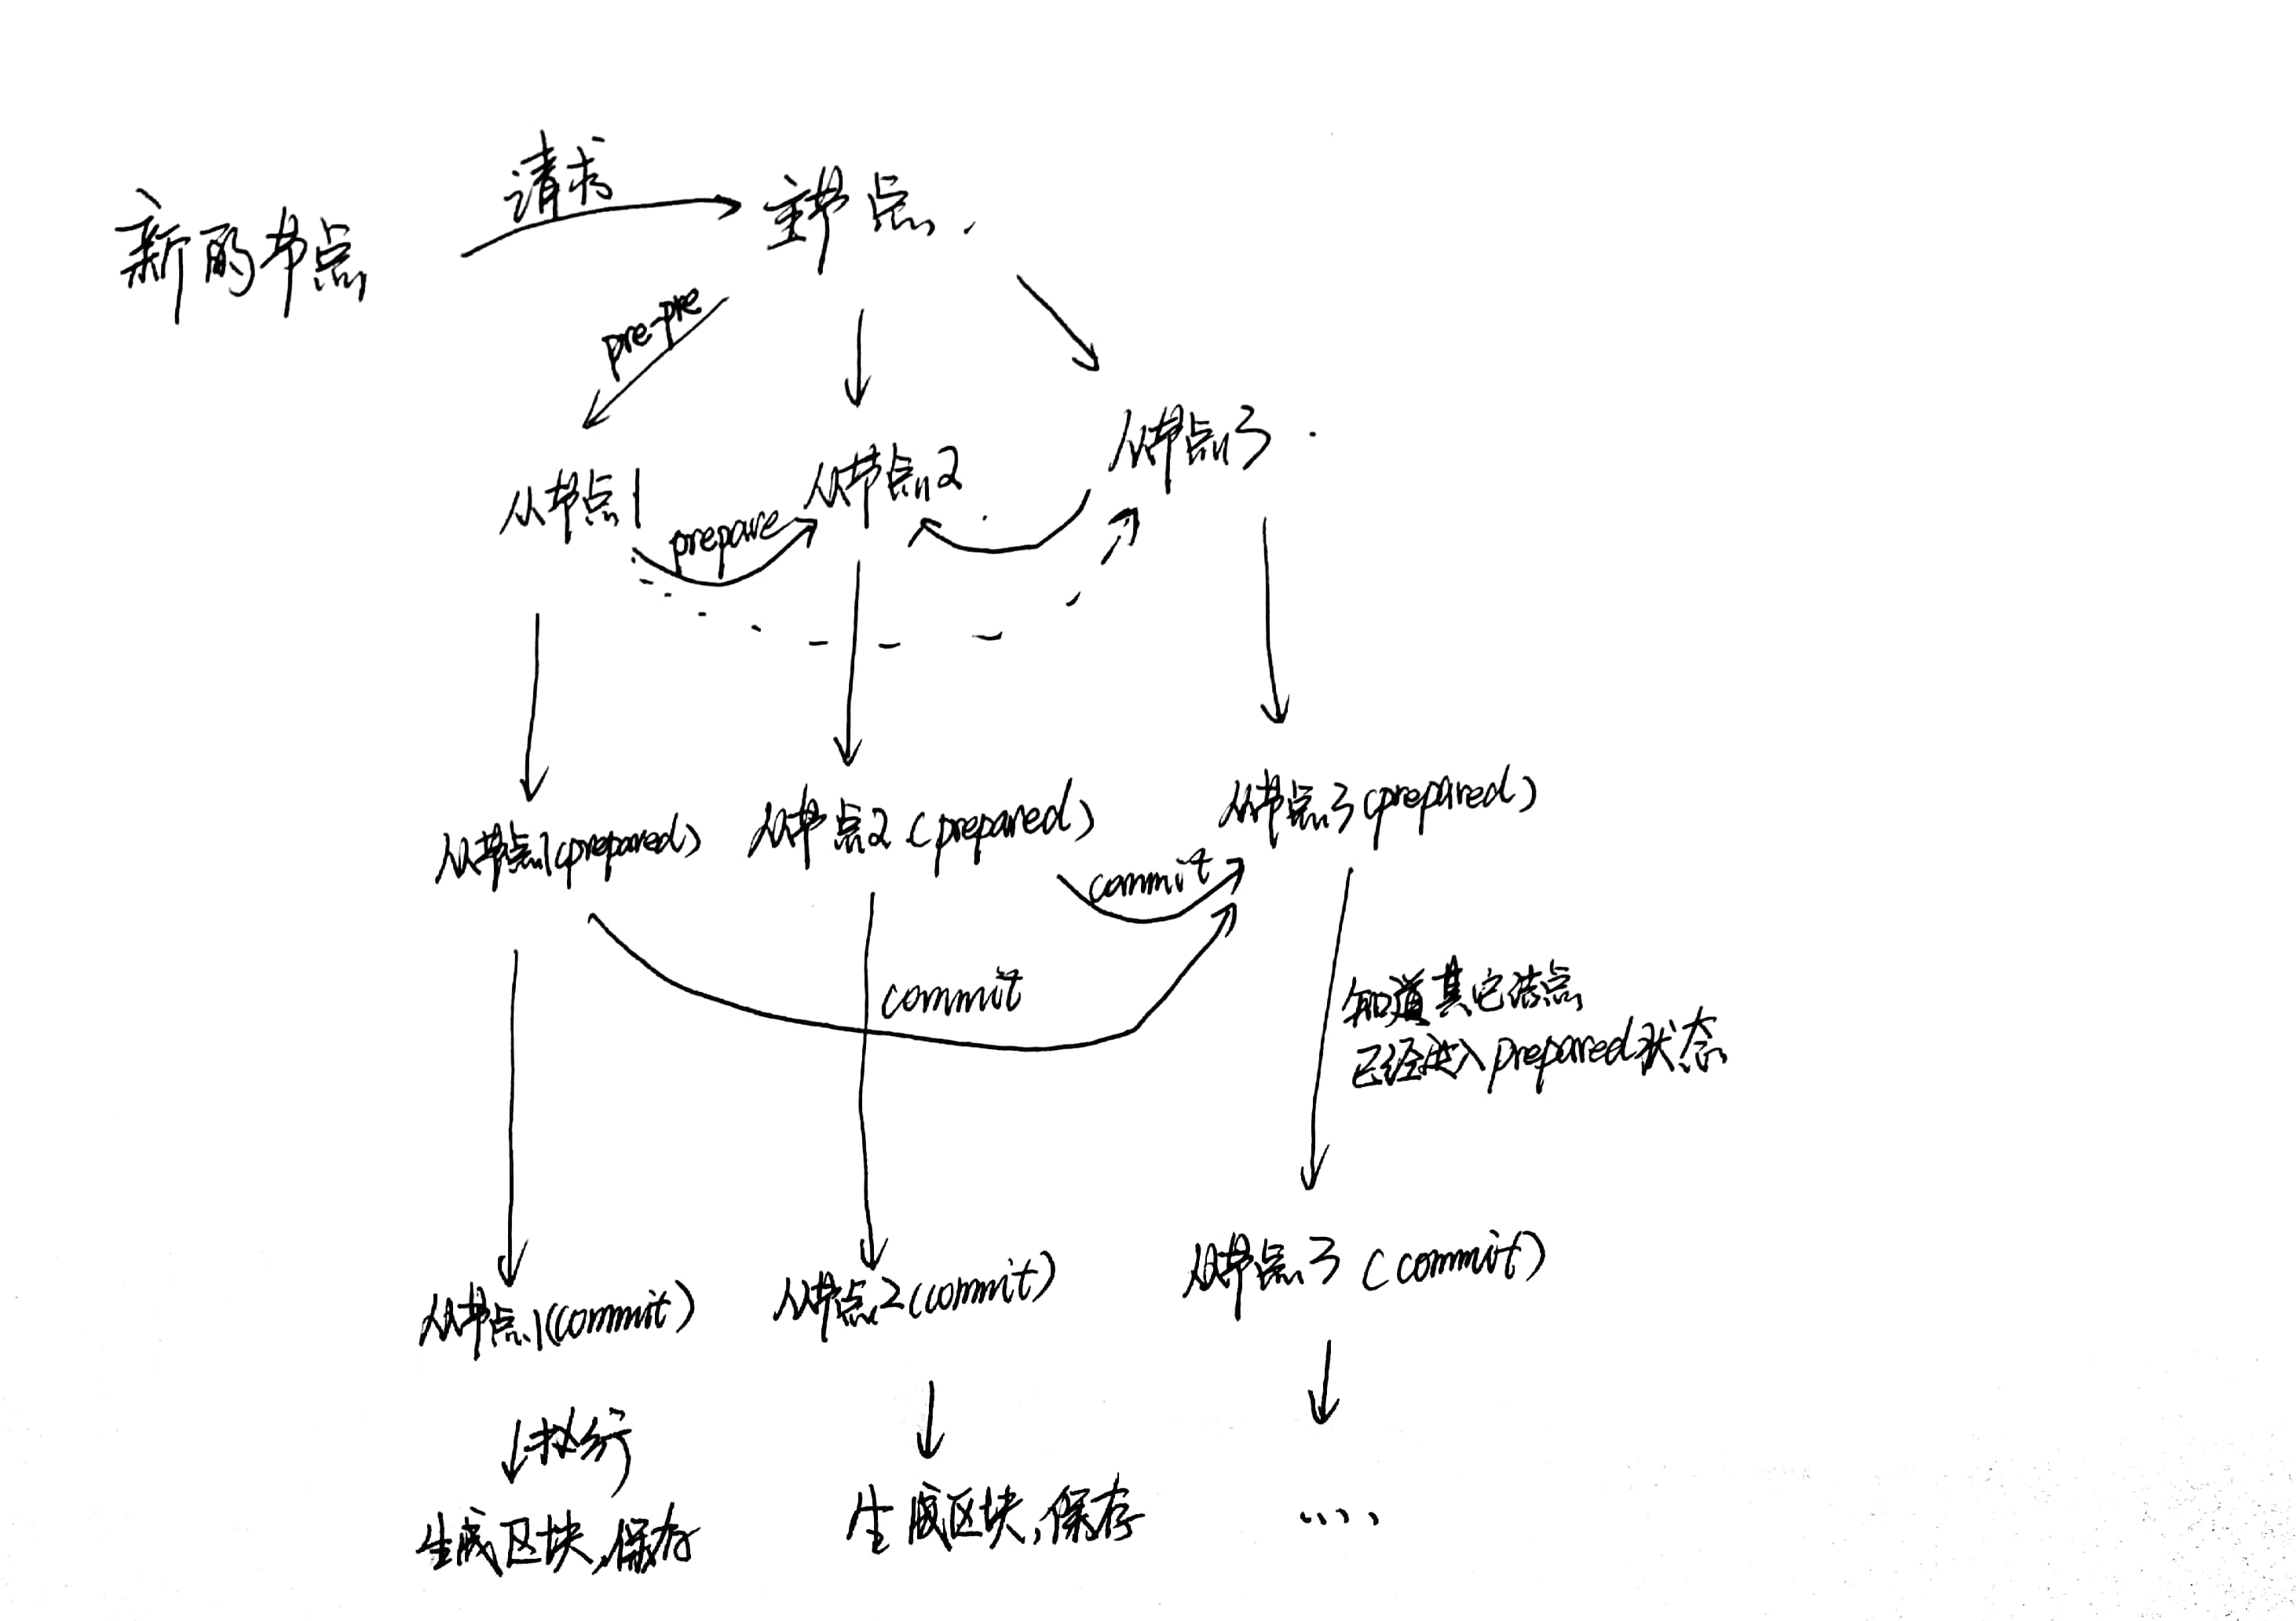 请求
新的节点
主节点.
pre-pre
从节点1
从节点2
从节点3
prepare
从节点1(prepared)
从节点2(prepared)
从节点3(prepared)
commit
commit
知道其它结点
已经进入prepared状态
从节点1(commit)
从节点2(commit)
从节点3(commit)
执行
生成区块,保存
生成区块,保存
....